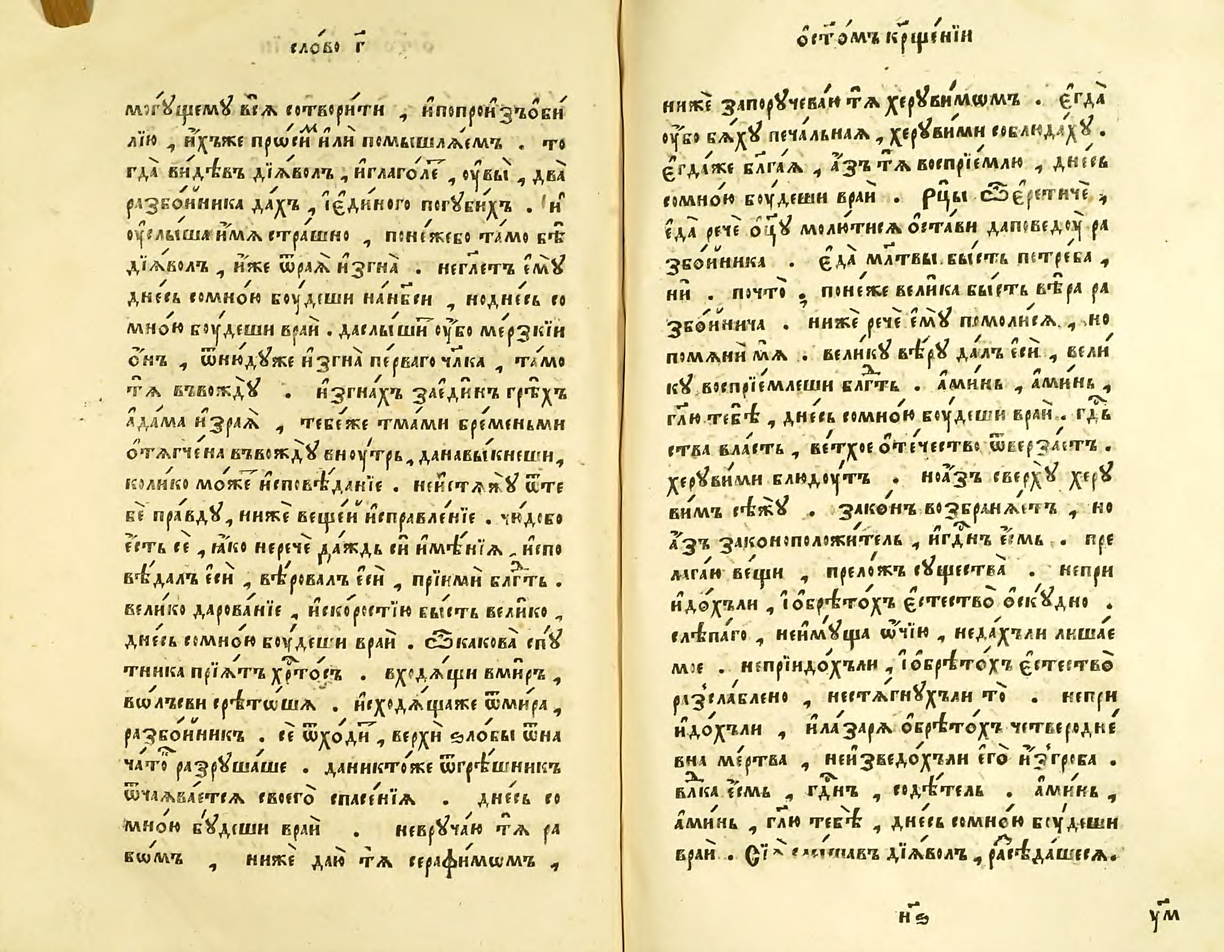 сло́во г҃
могꙋ́щемꙋ всѧ̀ сотвори́ти , и҆попрои҆зъѻби́
лїю , и҆́хъже проси́м и҆лѝ помышлѧ́емъ . то
гда̀ ви́дѣвъ дїѧ́волъ , и҆глаго́ле , оу҆вы̀ , два̀
разбо́йника да́хъ , і҆є҆ди́ного погꙋби́хъ . и҆
оу҆слы́ша и҆́мѧ стра́шно , поне́жебо та́мо бѣ̀
дїѧ́волъ , и҆́же ѿраѧ̀ и҆згна̀ . неглетъ є҆мꙋ̀
дне́сь сомно́ю боу́деши нан҃бси , ноднѐсь со
мно́ю боу́деши враѝ . даслы́ши оу҆́бо ме́рзкїи
о҆́нъ , ѿню́дꙋже и҆згна̀ пе́рваго чл҃ка , та́мо
тѧ̀ въвождꙋ̀ . и҆згна́хъ заеди́нъ грѣ́хъ
а҆да́ма и҆зраѧ̀ , тебе́же тма́ми бре́меньми
о҆тѧгче́на въвождꙋ̀ вноу́трь , данавы́кнеши ,
коли́ко мо́же и҆сповѣ́данїе . неи҆стѧжꙋ̀ ѿте
бѐ пра́вдꙋ , нижѐ веще́й и҆справле́нїе . чю́дово
є҆́сть сѐ , ꙗ҆́ко неречѐ да́ждь си и҆мѣ́нїѧ , и҆спо
вѣ́далъ є҆сѝ , вѣ́ровалъ є҆сѝ , прїимѝ блгⷣть .
вели́ко дарова́нїе , и҆ско́ростїю бы́сть вели́ко ,
дне́сь сомно́ю боу́деши враѝ . ѿкакова̀ спꙋ́
тника прїѧ́тъ хрⷭ҇тосъ . входѧ́щи вми́ръ ,
вѡлъсви срѣ́тѡшѧ . и҆сходѧ́щаже ѿми́ра ,
разбо́йникъ . сѐ ѿхо́ди , ве́рхи ѕло́бы ѿна
ча́то разрꙋша́ше . даникто́же ѿгрѣ́шникъ
ѿчаѧва́етсѧ своего̀ спасе́нїѧ . дне́сь со
мно́ю бꙋ́деши враѝ . невручаю тѧ̀ ра
вѡмъ , нижѐ даю̀ тѧ̀ серафи́мѡмъ ,
о҆ст҃омъ кр҃ще́нїи
нижѐ запорꙋчева́ю тѧ̀ херꙋви́мѡмъ . є҆гда̀
оу҆́бо бѧ́хꙋ печа́льнаѧ , херꙋви́ми соблюда́хꙋ .
є҆гда́же бл҃га́ѧ , а҆́зъ тѧ̀ воспрїе́млю , дне́сь
сомно́ю боу́деши враѝ . рцы̀ ѽеретичѐ ,
є҆да̀ речѐ о҆ц҃ꙋ̀ моли́тисѧ о҆ста́ви даповедоу̀ ра
збо́йника . є҆да̀ мл҃твы бы́сть потре́ба ,
нѝ . почто̀ ; поне́же вели́ка бы́сть вѣ́ра ра
збо́йнича . нижѐ речѐ є҆мꙋ̀ помоли́сѧ , но
помѧнѝ мѧ̀ . вели́кꙋ вѣ́рꙋ да́лъ є҆сѝ , вели́
кꙋ воспрїе́млеши блгⷣть . а҆ми́нь , а҆ми́нь ,
гл҃ю тебѣ̀ , дне́сь сомно́ю боу́деши враѝ . гдⷭ҇ь
ства вла́сть , ве́тхое о҆те́чество ѿверза́етъ .
херꙋви́ми блюдоу́тъ . ноа҆́зъ све́рхꙋ херꙋ
ви́мъ сѣжꙋ̀ . зако́нъ возбранѧ́етъ , но
а҆́зъ законоположи́тель , и҆гдⷭ҇нъ є҆́смь . пре
лагаю ве́щи , прело́жъ сꙋщества̀ . непри
и҆до́хъли , і҆обрѣто́хъ є҆стество̀ о҆скꙋ́дно .
слѣпа́го , неимꙋ́ща ѻ҆чїю , неда́хъли лиша́е
мое . непрїидо́хъли , і҆обрѣто́хъ є҆стество̀
разсла́блено , нестѧгнꙋ́хъли то̀ . непри
и҆до́хъли , и҆ла́зарѧ о҆брѣто́хъ четвероднѐ
вна ме́ртва , неи҆зведо́хъли его̀ и҆згро́ба .
влⷣка є҆́смь , гдⷭ҇нъ , содѣ́тель . а҆ми́нь ,
а҆ми́нь , гл҃ю тебѣ̀ , дне́сь сомно́ю боу́деши
враѝ . Сїѧ̀ слы́шавъ дїѧ́волъ , разсѣда́шесѧ .
н҃ѕ
ꙋ҆м